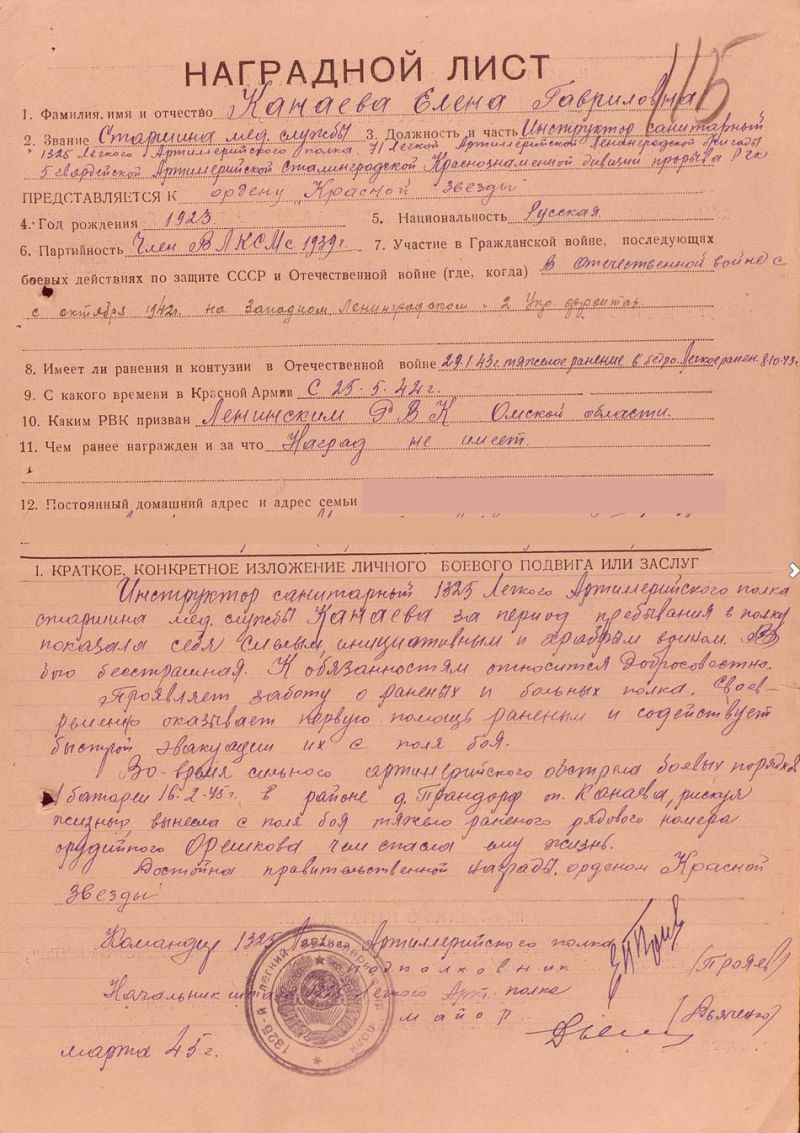 115
НАГРАДНОЙ ЛИСТ
1. Фамилия, имя и отчество Канаева Елена Гавриловна
2. Звание Старшина мед. службы 3. Должность и часть Инструктор санитарный
1325 Легкого Артиллерийского полка 71 Легкой Артиллерийской Ленинградской бригады
5 гвардейской Артиллерийской Сталинградской Краснознаменной дивизии прорыва РГК
ПРЕДСТАВЛЯЕТСЯ К ордену Красной звезды
4. Год рождения 1923 5. Национальность Русская
6. Партийность Член ВЛКСМ с 1939г. 7. Участие в Гражданской войне, последующих
боевых действиях по защите СССР и Отечественной войне (где, когда) В отечественной войне с
с октября 1942г. на Западном, Ленинградском 2 Укр. фронтах
8. Имеет ли ранения и контузии в Отечественной войне 29.1.43г. тяжелое ранение в бедро. Легкое ранен. 8.10.43г.
9. С какого времени в Красной Армии С 25.5.42г.
10. Каким РВК призван Ленинским РВК Омской области.
11. Чем ранее награжден и за что Наград не имеет.
12. Постоянный домашний адрес и адрес семьи
1. КРАТКОЕ, КОНКРЕТНОЕ ИЗЛОЖЕНИЕ ЛИЧНОГО БОЕВОГО ПОДВИГА ИЛИ ЗАСЛУГ
Инструктор санитарный 1325 Легкого Артиллерийского полка
старшина мед. службы Канаева за период пребывания в полку
показала себя смелым, инициативным и храбрым воином. В
бою бесстрашная. К обязанностям относится добросовестно.
Проявляет заботу о раненых и больных полка. Своев-
ременно оказывает первую помощь раненым и содействует
быстрой эвакуации их с поля боя.
Во-время сильного артиллерийского обстрела боевых порядков
1 батареи 16.2.45г. в районе д. Прандорф т. Канаева, рискуя
жизнью, вынесла с поля боя тяжело раненого рядового номера
орудийного Орешкова чем спасла ему жизнь.
Достойна правительственной награды, орденом Красной
звезды.
Командир 1325 Легкого Артиллерийского полка
подполковник (Продев)
Начальник штаба 1325 Легкого Арт. полка
майор (Дьяченко)
марта 45г.
1325-й ЛЕГКИЙ АРТИЛЛЕРИЙСКИЙ ПОЛК